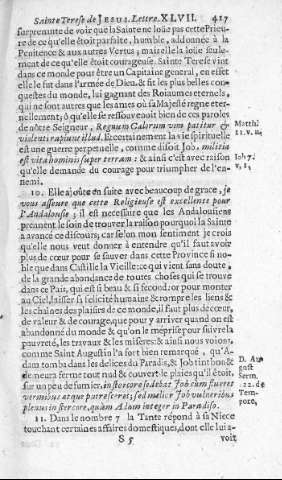 Sainte Terese de JESUS. Lettre. XLVII. 417
surprenute de voir que la Sainte ne loüe pas cette Prieu-
re de ce qu'elle étoit parfaite, humble, addonnée à la
Penitence & aux autres Vertus; mais elle la loüe seule-
ment de ce qu'elle étoit courageuse. Sainte Terese vint
dans ce monde pour être un Capitaine general, en effet
elle le fut dans l'armée de Dieu, & fit les plus belles con-
questes du monde, lui gagnant des Roiaumes éternels,
qui ne sont autres que les ames où sa Majesté regne éter-
nellement; ô qu'elle se ressouvenoit bien de ces paroles
de nôtre Seigneur, Regnum Cœlorum vim patitur &
violenti rapiunt illud. Et certainement la vie spirituelle
est une guerre perpetuelle, comme disoit Job, militia
est vita hominis super terram: & ainsi c'est avec raison
qu'elle demande du courage pour triompher de l'en-
nemi.
Matth.
11. v. 12.
Job 7.
v. 1.
10. Elle ajoûte en suite avec beaucoup de grace, je
vous assure que cette Religieuse est excellente pour
l'Andalousie; il est necessaire que les Andalousiens
prennent le soin de trouver la raison pourquoi la Sainte
a avancé ce discours; car selon mon sentiment je crois
qu'elle nous veut donner à entendre qu'il faut avoir
plus de cœur pour se sauver dans cette Province si no-
ble que dans Castille la Vieille: ce qui vient sans doute,
de la grande abondance de toutes choses qui se trouve
dans ce Païs, qui est si beau & si fecond: or pour monter
au Ciel, laisser sa felicité humaine & rompre les liens &
les chaînes des plaisirs de ce monde, il faut plus de cœur,
de valeur & de courage, que pour y arriver quand on est
abandonné du monde & qu'on le méprise pour suivre la
pauvreté, les travaux & les miseres: & ainsi nous voions,
comme Saint Augustin l'a fort bien remarqué, qu'A-
dam tomba dans les delices du Paradis, & Job tint bon &
demeura ferme tout nud & couvert de plaies qu'il étoit,
sur un peu de fumier, in stercore sedebat Job cum flueret
vermibus atque putresceret; sed melior Job vulneribus
plenus in stercore, quàm Adam integer in Paradiso.
D. Au
gust
Serm.
22. de
Tem-
pore,
11. Dans le nombre 7 la Tante répond à sa Niece
touchant certaines affaires domestiques, dont elle lui a-
S 5 voit